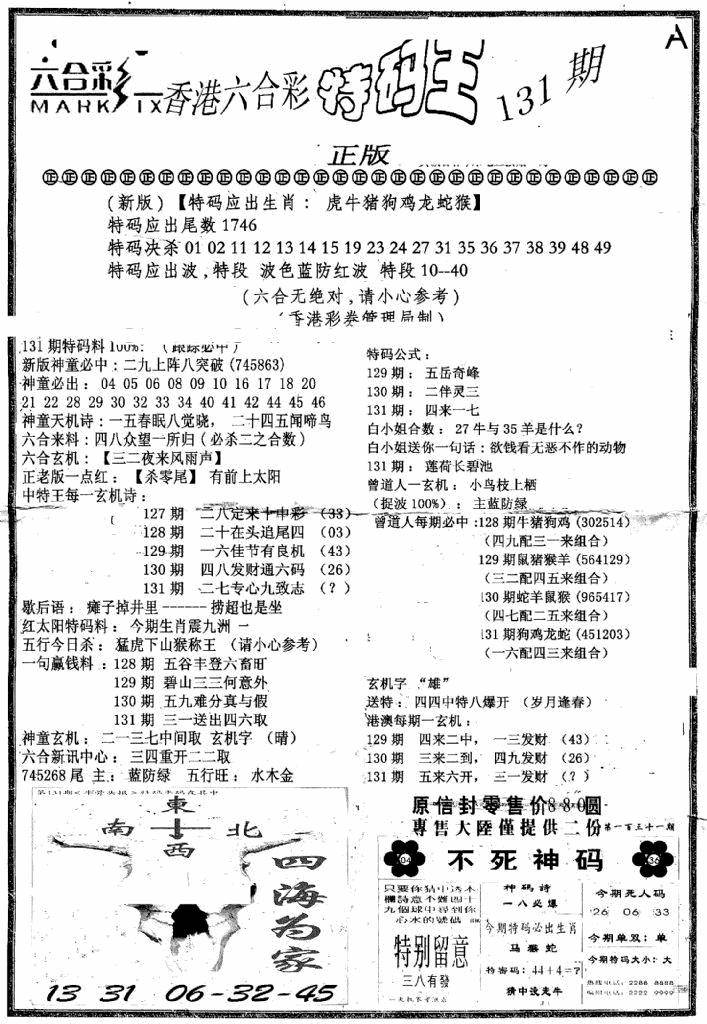 A
六合彩
MARK IX
香港六合彩 特码王 131期
正版
正正正正正正正正正正正正正正正正正正正正正正正正正正正正正正正正
(新版)【特码应出生肖: 虎牛猪狗鸡龙蛇猴】
特码应出尾数1746
特码决杀 01 02 11 12 13 14 15 19 23 24 27 31 35 36 37 38 39 48 49
特码应出波,特段 波色蓝防红波 特段 10--40
(六合无绝对,请小心参考)
(香港彩券管理局制)
131期特码料100%: (跟踪必中)
新版神童必中:二九上阵八突破(745863)
神童必出: 04 05 06 08 09 10 16 17 18 20
21 22 28 29 30 32 33 34 40 41 42 44 45 46
神童天机诗:一五春眠八觉晓, 二十四五闻啼鸟
六合来料:四八众望一所归(必杀二之合数)
六合玄机:【三二夜来风雨声】
正老版一点红:【杀零尾】 有前上太阳
中特王每一玄机诗:
127期 二八定来十中彩 (33)
128期 二十在头追尾四 (03)
129期 一六佳节有良机 (43)
130期 四八发财通六码 (26)
131期 二七专心九致志 (?)
歇后语: 瘫子掉井里------捞超也是坐
红太阳特码料: 今期生肖震九洲 一
五行今日杀: 猛虎下山猴称王 (请小心参考)
一句赢钱料:128期 五谷丰登六畜旺
129期 碧山三三何意外
130期 五九难分真与假
131期 三一送出四六取
神童玄机: 二一三七中间取 玄机字 (晴)
六合新讯中心: 三四重开二二取
745268尾 主: 蓝防绿 五行旺: 水木金
特码公式:
129期: 五岳奇峰
130期: 二伴灵三
131期: 四来一七
白小姐合数: 27牛与35羊是什么?
白小姐送你一句话:欲钱看无恶不作的动物
131期: 莲荷长碧池
曾道人一玄机: 小鸟枝上栖
(捉波100%): 主蓝防绿
曾道人每期必中:128期牛猪狗鸡(302514)
(四九配三一来组合)
129期鼠猪猴羊(564129)
(三二配四五来组合)
130期蛇羊鼠猴(965417)
(四七配二五来组合)
131期狗鸡龙蛇(451203)
(一六配四三来组合)
玄机字 “雄”
送特: 四四中特八爆开 (岁月逢春)
港澳每期一玄机:
129期 四来二中, 一三发财 (43)
130期 三来二到, 四九发财 (26)
131期 五来六开, 三一发财 (?)
東
南 北
西
四海为家
13 31 06-32-45
原信封零售价880圆
專售大陸僅提供二份 第一百三十一期
04 不死神码 36
只要你猜中这本
欄詩意不難四十
九個球中尋到你
心水的號码
特别留意
三八有發
神码诗
一八必爆
今期特码必出生肖
马 蛇
特密码: 44+4=?
猜中没走牛
今期无人码
26 06 33
今期单双: 单
今期特码大小: 大
热线电话: 2288 8888
2222 9999